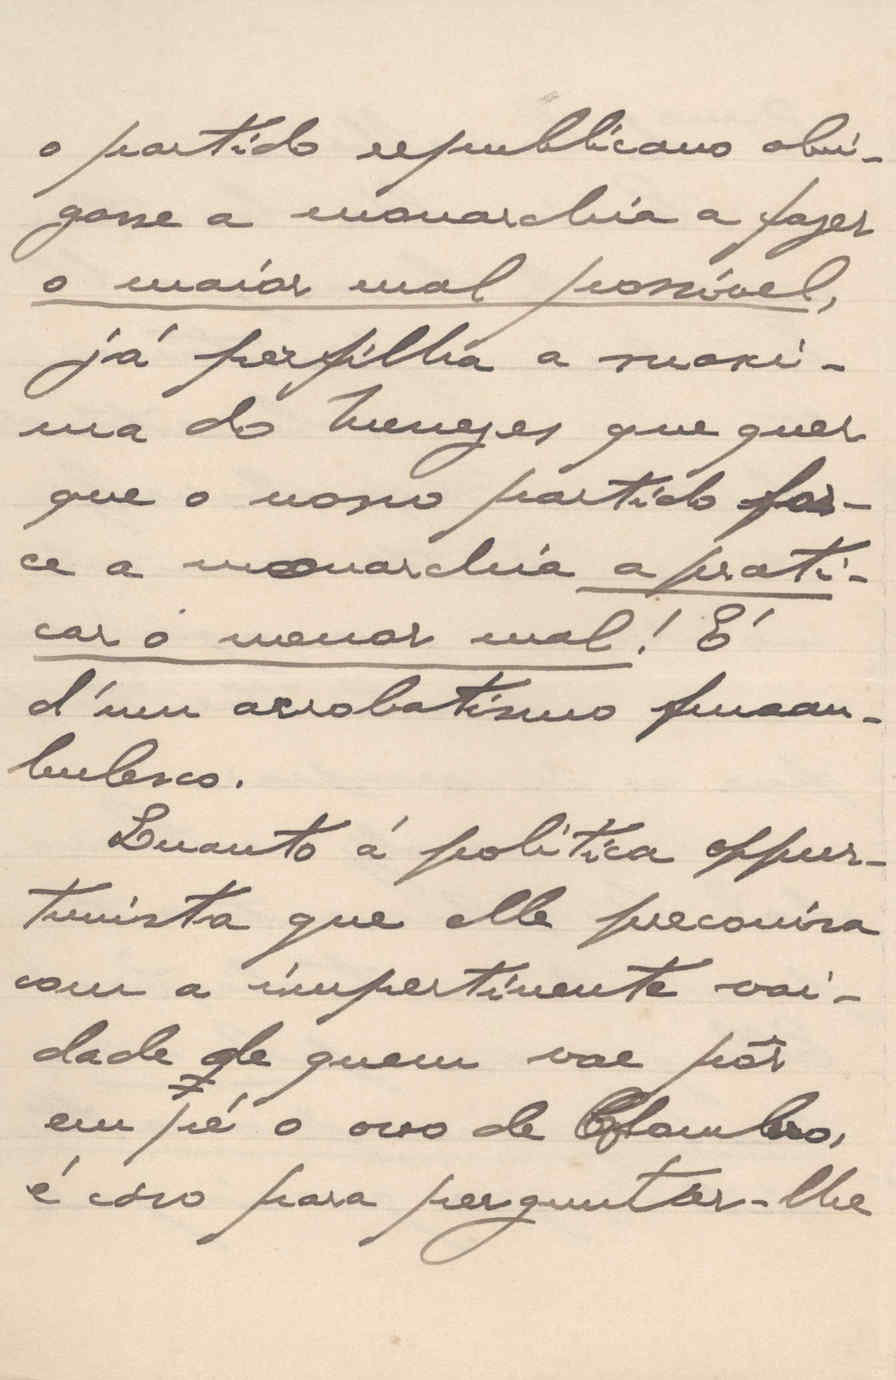 o partido republicano obri-
gasse a monarchia a fazer
o maior mal possivel,
já perfilha a maxi-
ma do Menezes que quer
que o nosso partido for-
ce a monarchia a prati-
car o menor mal! É
d'um acrobatismo funam-
bulesco.
Quanto á politica oppor-
tunista que elle preconisa
com a impertinente vai-
dade de quem vae pôr
em pé o ovo de Colombo,
é caso para perguntar-lhe